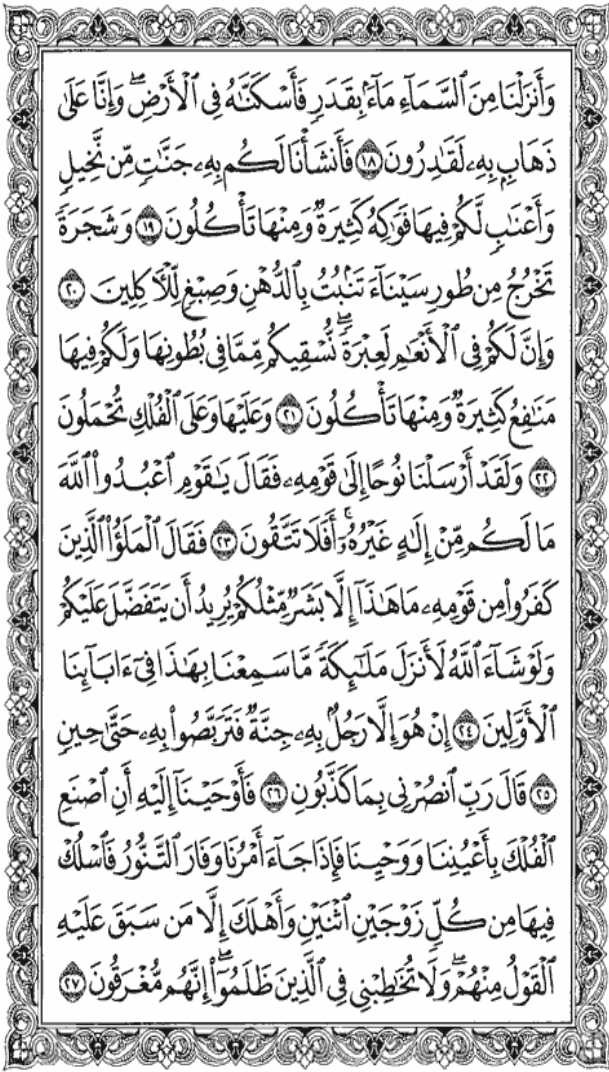 وَأَنزَلْنَا مِنَ ٱلسَّمَآءِ مَآءًۢ بِقَدَرٍ فَأَسْكَنَّٰهُ فِى ٱلْأَرْضِ ۖ وَإِنَّا عَلَىٰ
ذَهَابٍۭ بِهِۦ لَقَٰدِرُونَ ١٨ فَأَنشَأْنَا لَكُم بِهِۦ جَنَّٰتٍ مِّن نَّخِيلٍ
وَأَعْنَٰبٍ لَّكُمْ فِيهَا فَوَٰكِهُ كَثِيرَةٌ وَمِنْهَا تَأْكُلُونَ ١٩ وَشَجَرَةً
تَخْرُجُ مِن طُورِ سَيْنَآءَ تَنۢبُتُ بِٱلدُّهْنِ وَصِبْغٍ لِّلْـَٔاكِلِينَ ٢٠
وَإِنَّ لَكُمْ فِى ٱلْأَنْعَٰمِ لَعِبْرَةً ۖ نُّسْقِيكُم مِّمَّا فِى بُطُونِهَا وَلَكُمْ فِيهَا
مَنَٰفِعُ كَثِيرَةٌ وَمِنْهَا تَأْكُلُونَ ٢١ وَعَلَيْهَا وَعَلَى ٱلْفُلْكِ تُحْمَلُونَ
٢٢ وَلَقَدْ أَرْسَلْنَا نُوحًا إِلَىٰ قَوْمِهِۦ فَقَالَ يَٰقَوْمِ ٱعْبُدُوا۟ ٱللَّهَ
مَا لَكُم مِّنْ إِلَٰهٍ غَيْرُهُۥٓ ۖ أَفَلَا تَتَّقُونَ ٢٣ فَقَالَ ٱلْمَلَؤُا۟ ٱلَّذِينَ
كَفَرُوا۟ مِن قَوْمِهِۦ مَا هَٰذَآ إِلَّا بَشَرٌ مِّثْلُكُمْ يُرِيدُ أَن يَتَفَضَّلَ عَلَيْكُمْ
وَلَوْ شَآءَ ٱللَّهُ لَأَنزَلَ مَلَٰٓئِكَةً مَّا سَمِعْنَا بِهَٰذَا فِىٓ ءَابَآئِنَا
ٱلْأَوَّلِينَ ٢٤ إِنْ هُوَ إِلَّا رَجُلٌۢ بِهِۦ جِنَّةٌ فَتَرَبَّصُوا۟ بِهِۦ حَتَّىٰ حِينٍ
٢٥ قَالَ رَبِّ ٱنصُرْنِى بِمَا كَذَّبُونِ ٢٦ فَأَوْحَيْنَآ إِلَيْهِ أَنِ ٱصْنَعِ
ٱلْفُلْكَ بِأَعْيُنِنَا وَوَحْيِنَا فَإِذَا جَآءَ أَمْرُنَا وَفَارَ ٱلتَّنُّورُ فَٱسْلُكْ
فِيهَا مِن كُلٍّ زَوْجَيْنِ ٱثْنَيْنِ وَأَهْلَكَ إِلَّا مَن سَبَقَ عَلَيْهِ
ٱلْقَوْلُ مِنْهُمْ ۖ وَلَا تُخَٰطِبْنِى فِى ٱلَّذِينَ ظَلَمُوٓا۟ ۖ إِنَّهُم مُّغْرَقُونَ ٢٧